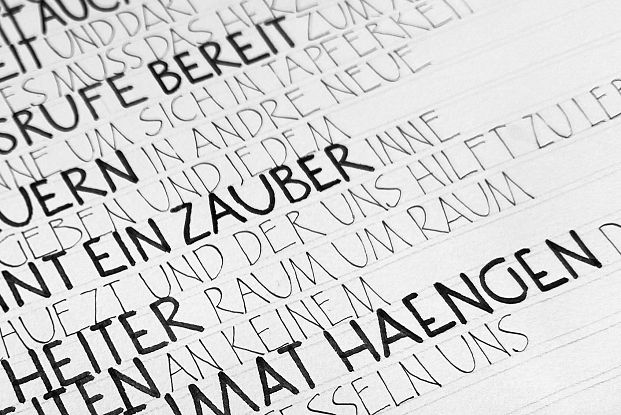 T AUCH
EIT UND DARF
ES MUSS DAS HERZ
SRUFE BEREIT ZUM
NE UM SICH IN TAPFERKEIT
UERN IN ANDRE NEUE
GEBEN UND JEDEM
NT EIN ZAUBER INNE
HUETZT UND DER UNS HILFT ZU LEB
HEITER RAUM UM RAUM
ITEN AN KEINEM
IMAT HAENGEN D
ESSELN UNS